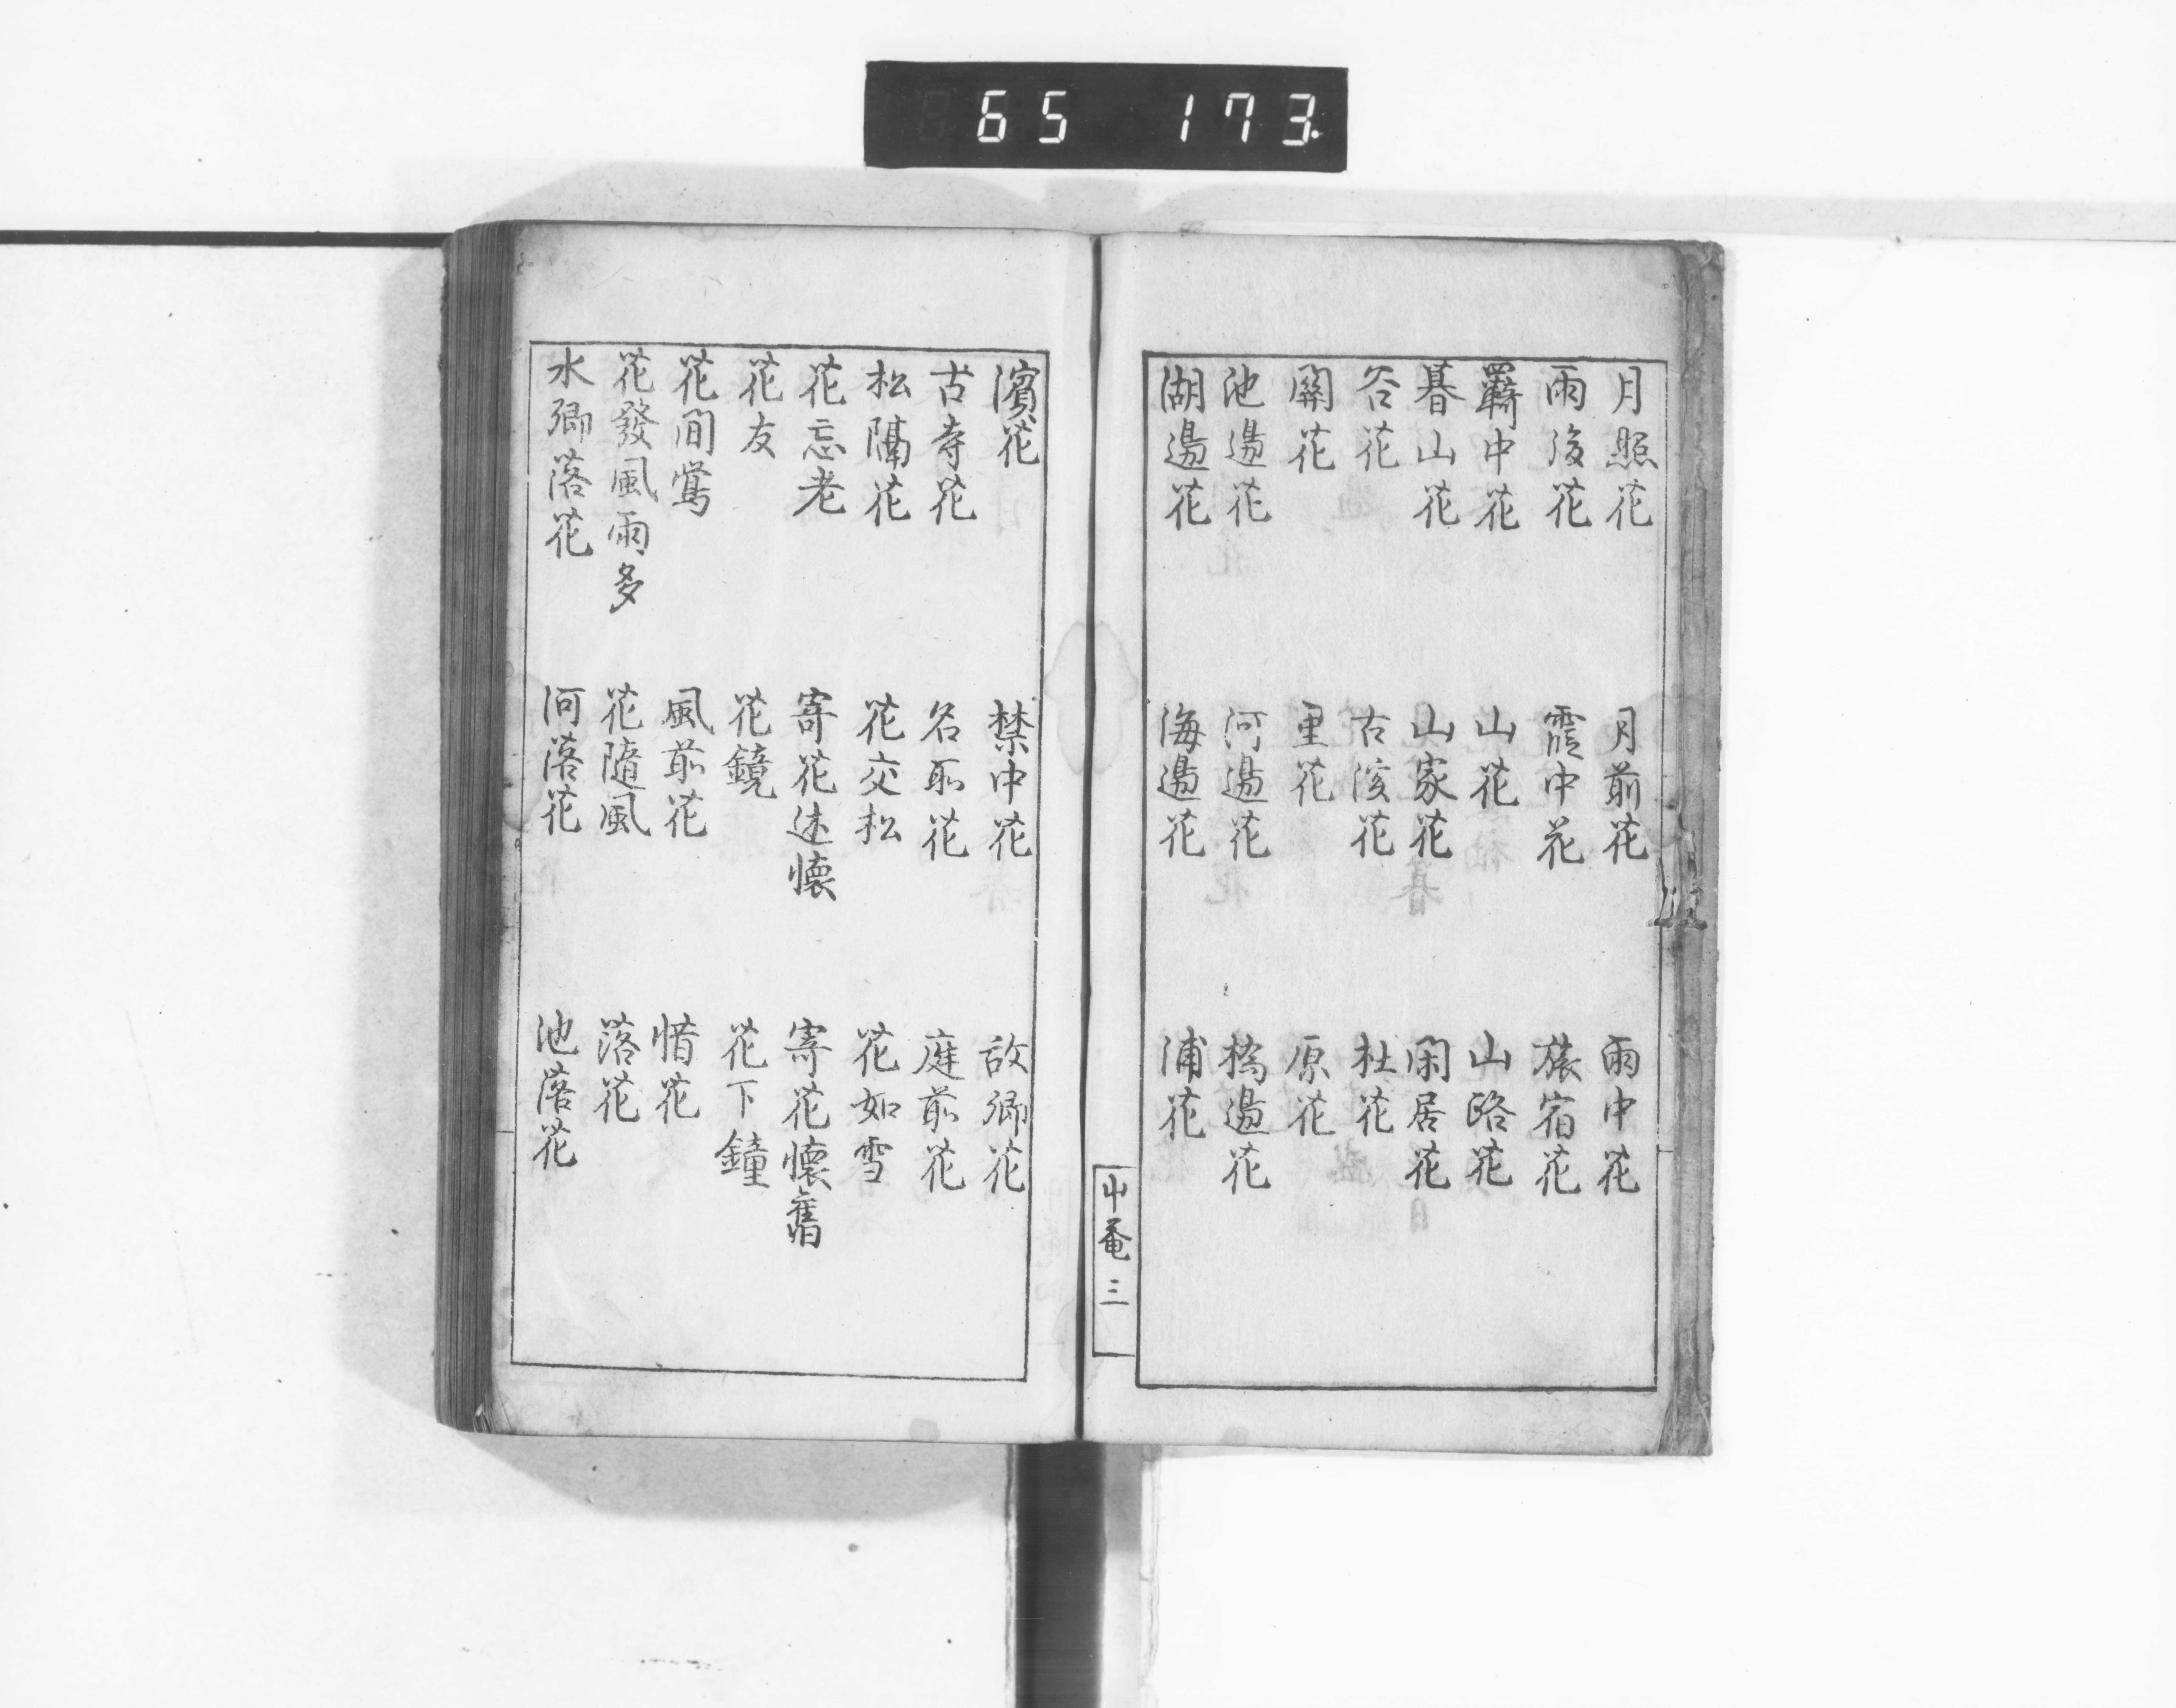 65 173
月照花 月前花 雨中花
雨後花 霞中花 旅宿花
羇中花 山花 山路花
暮山花 山家花 閑居花
谷花 古渡花 杜花
關花 里花 原花
池邊花 河邊花 橋邊花
湖邊花 海邊花 浦花
三
濱花 禁中花 故郷花
古寺花 名所花 庭前花
松隔花 花交松 花如雪
花忘老 寄花述懐 寄花懐舊
花友 花鏡 花下鐘
花間鶯 風前花 惜花
花發風雨多 花隨風 落花
水郷落花 河落花 池落花